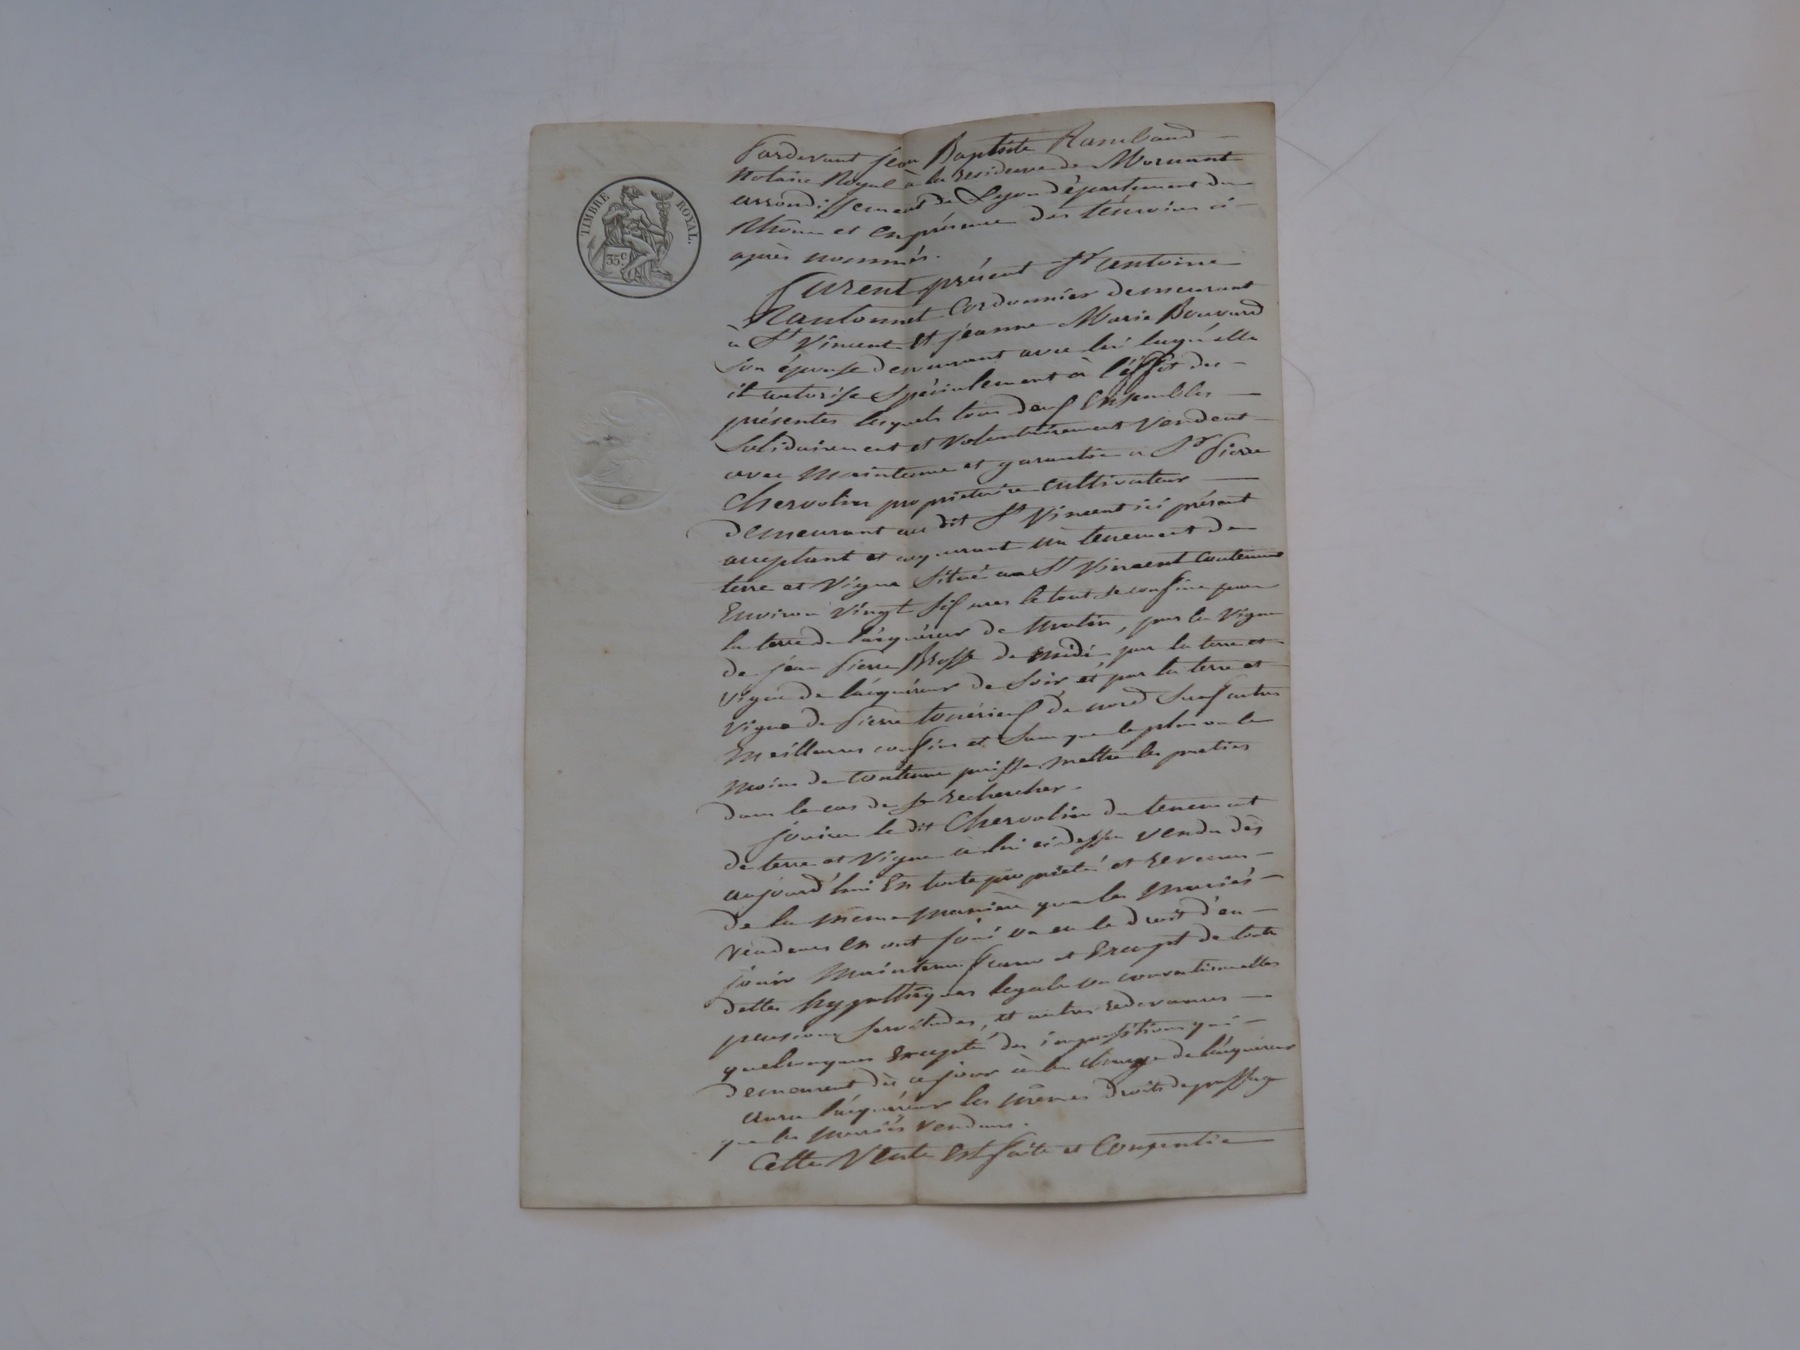 TIMBRE ROYAL.
35c
Pardevant jean Baptiste Rambaud
Notaire Royal à la residence de Mornant
arrondissement de Lyon département du
Rhône et en présence des témoins ci-
après nommés.
furent présent Sr antoine
Cordonnier demeurant
à St Vincent Et jeanne Marie Bouvard
son épouse demeurant avec lui laquelle
il autorise Spécialement à l'effet des
présentes lesquels tous deux Ensembles
Solidairement et Volontairement Vendent
avec Maintenue et garantie a Sr Pierre
Chervolin propriétaire cultivateur
demeurant au dit St Vincent ici présent
acceptant et acquerant un tenement de
terre et Vigne Situé au St Vincent Contenue
Environ Vingt Six ares le tout se confine par
la terre de l'acquéreur de Matin, par la Vigne
de jean Pierre Brosse de midi par la terre et
Vigne de l'acquéreur de Soir et par la terre et
Vigne de Pierre de nord Sauf autres
Meilleures confins et Sans que le plus ou le
moins de Contenue puisse mettre les parties
dans le cas de se Rechercher.
jouira le dit Chervolin du tenement
de terre et Vigne à lui ci dessu Vendu dès
aujourd'hui En toute propriété et Revenu
de la même manière que les Mariés
Vendeurs En ont joui ou eu le droit d'en
jouir Maintenu franc et Exempt de toute
dettes hyppothèques legale ou conventionnelles
pensions Servitudes, et autres Redevances
quelconques Excepté des impositions qui
demeurent dès ce jour à la Charge de l'acquéreur
aura l'acquéreur les mêmes droits de passage
que les mariés Vendeurs.
Cette Vente Est faite et Consentie